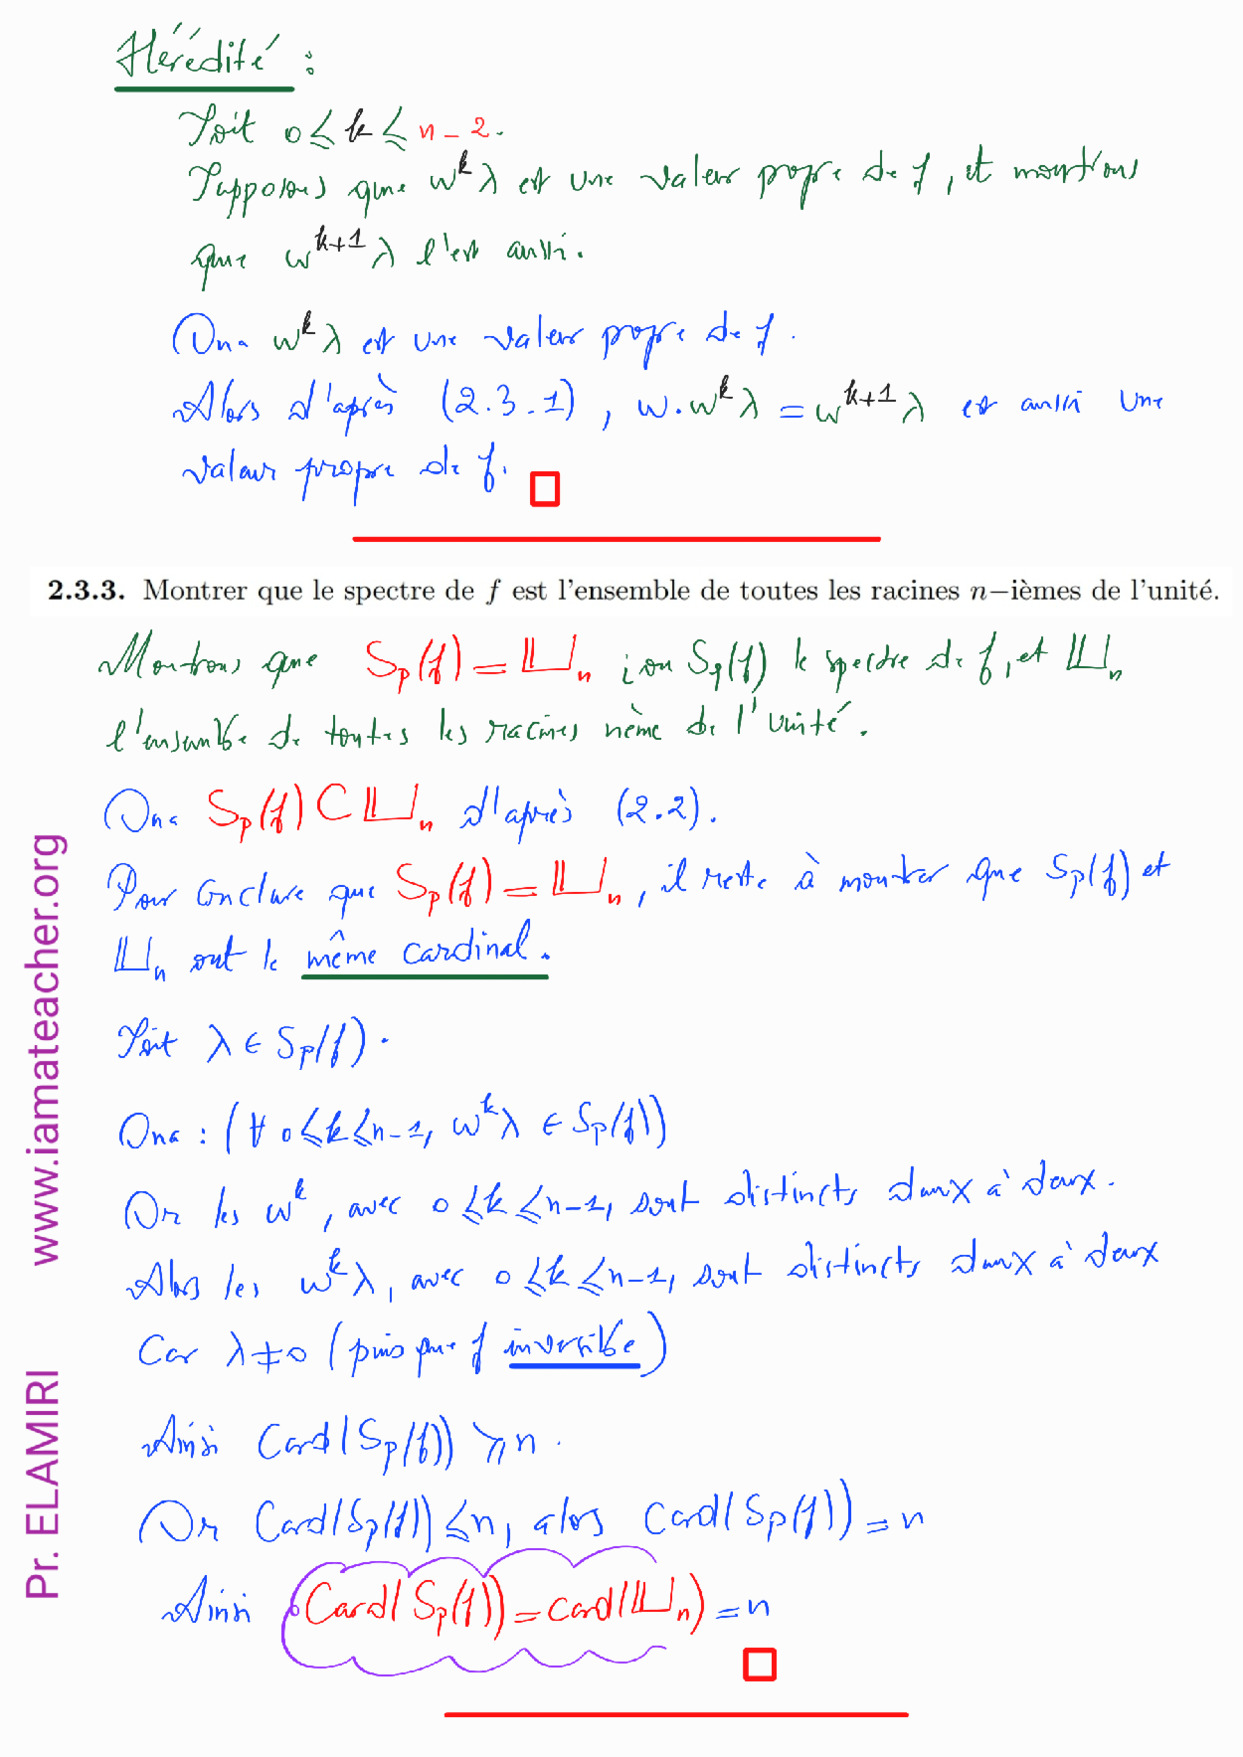 Hérédité :
Soit 0 ≤ k ≤ n-2.
Supposons que w^k λ est une valeur propre de f, et montrons
que w^{k+1} λ l'est aussi.
On a w^k λ est une valeur propre de f.
Alors d'après (2.3.1), w.w^k λ = w^{k+1} λ est aussi une
valeur propre de f. □
2.3.3. Montrer que le spectre de f est l'ensemble de toutes les racines n−ièmes de l'unité.
Montrons que Sp(f) = 𝕌_n ; où Sp(f) le spectre de f, et 𝕌_n
l'ensemble de toutes les racines nème de l'unité.
On a Sp(f) ⊂ 𝕌_n d'après (2.2).
Pour conclure que Sp(f) = 𝕌_n, il reste à montrer que Sp(f) et
𝕌_n ont le même cardinal.
Soit λ ∈ Sp(f).
On a : (∀ 0 ≤ k ≤ n-1, w^k λ ∈ Sp(f))
Or les w^k, avec 0 ≤ k ≤ n-1, sont distincts deux à deux.
Alors les w^k λ, avec 0 ≤ k ≤ n-1, sont distincts deux à deux
Car λ ≠ 0 (puisque f inversible)
Ainsi Card(Sp(f)) ⩾ n.
Or Card(Sp(f)) ≤ n, alors Card(Sp(f)) = n
Ainsi Card(Sp(f)) = card(𝕌_n) = n
□
Pr. ELAMIRI www.iamateacher.org